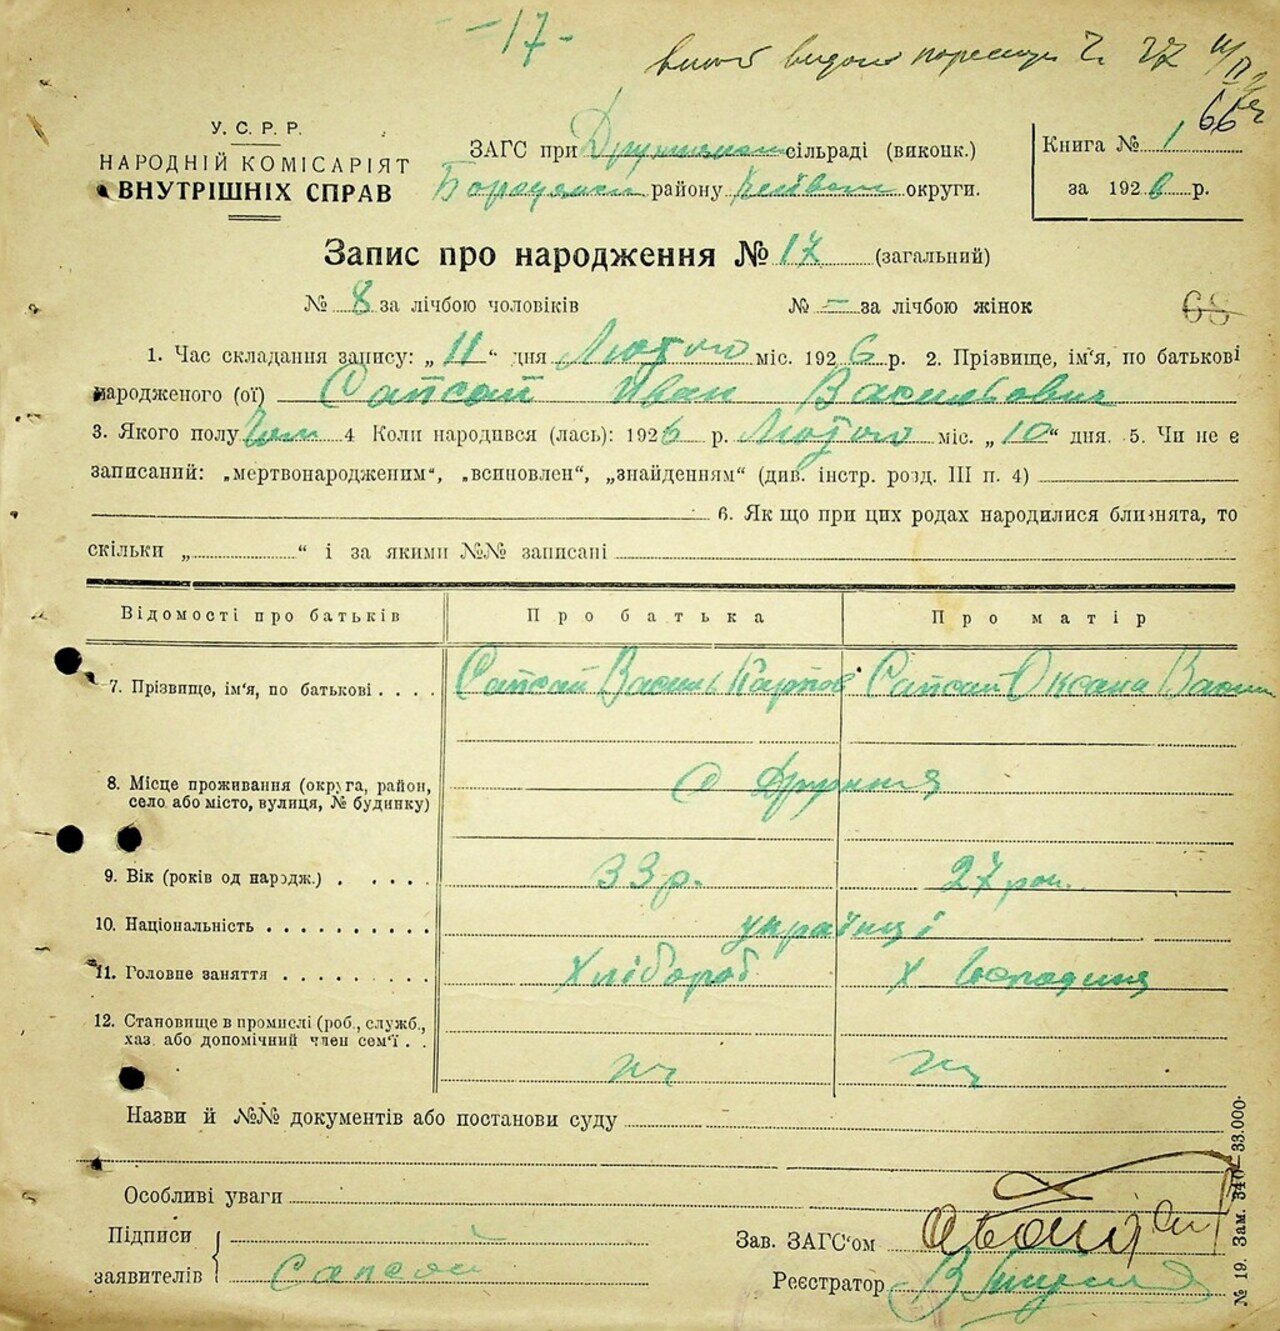 -17-
66
У. С. Р. Р.
НАРОДНІЙ КОМІСАРІЯТ
ВНУТРІШНІХ СПРАВ
ЗАГС при сільраді (виконк.)
району округи.
Книга № 1
за 1926 р.
Запис про народження № 17 (загальний)
№ 8 за лічбою чоловіків № – за лічбою жінок
68
1. Час складання запису: „ 11 “ дня Лютого міс. 1926 р. 2. Прізвище, ім'я, по батькові
народженого (ої) Сапсай Иван Васильович
3. Якого полу Чол 4 Коли народився (лась): 1926 р. Лютого міс. „ 10 “ дня. 5. Чи не є
записаний: „мертвонародженим“, „всиновлен“, „знайденням“ (див. інстр. розд. III п. 4)
6. Як що при цих родах народилися близнята, то
скільки „ “ і за якими №№ записані
Відомості про батьків Про батька Про матір
7. Прізвище, ім'я, по батькові . . . . Сапсай Василь Карпов Сапсай Оксана Васил
8. Місце проживання (округа, район,
село або місто, вулиця, № будинку) с Дружня
9. Вік (років од нарôдж.) . . . . . 33 р. 27 рок.
10. Національність . . . . . . . . . . українці
11. Головне заняття . . . . . . . . . Хлібороб Х Господиня
12. Становище в промислі (роб., служб.,
хаз. або допомічний член сем'ї . .
Назви й №№ документів або постанови суду
Особливі уваги
Підписи
заявителів Сапсай
Зав. ЗАГС'ом
Реєстратор
№ 19. Зам. 340—33.000.